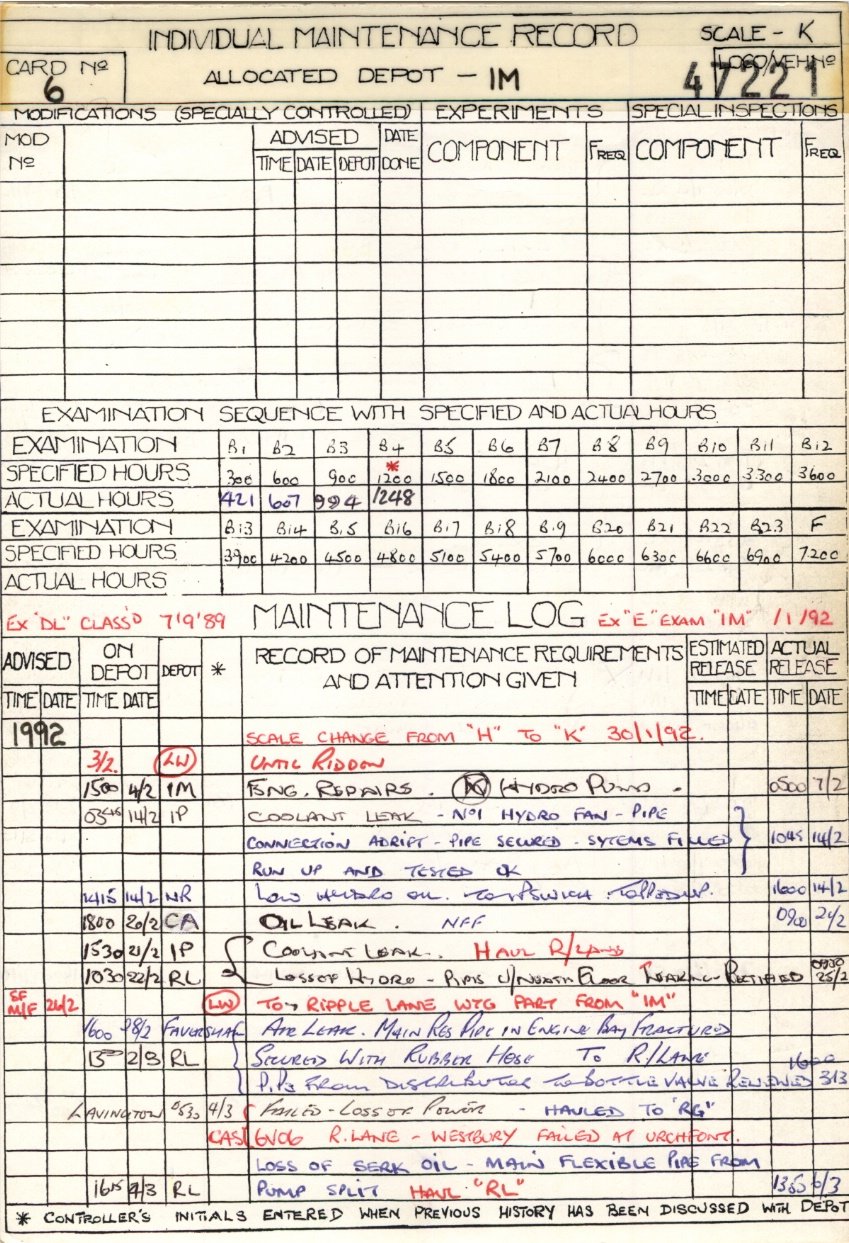 INDIVIDUAL MAINTENANCE RECORD SCALE - K
CARD Nº 6 ALLOCATED DEPOT - IM LOCO/VEH Nº 47221
MODIFICATIONS (SPECIALLY CONTROLLED) EXPERIMENTS SPECIAL INSPECTIONS
MOD Nº ADVISED DATE DONE COMPONENT FREQ COMPONENT FREQ
TIME DATE DEPOT
EXAMINATION SEQUENCE WITH SPECIFIED AND ACTUAL HOURS
EXAMINATION B1 B2 B3 B4 B5 B6 B7 B8 B9 B10 B11 B12
SPECIFIED HOURS 300 600 900 *1200 1500 1800 2100 2400 2700 3000 3300 3600
ACTUAL HOURS 421 607 994 1248
EXAMINATION B13 B14 B15 B16 B17 B18 B19 B20 B21 B22 B23 F
SPECIFIED HOURS 3900 4200 4500 4800 5100 5400 5700 6000 6300 6600 6900 7200
ACTUAL HOURS
EX "DL" CLASS'D 7'9'89 MAINTENANCE LOG EX "E" EXAM "IM" /1/92
ADVISED ON DEPOT DEPOT * RECORD OF MAINTENANCE REQUIREMENTS AND ATTENTION GIVEN ESTIMATED RELEASE ACTUAL RELEASE
TIME DATE TIME DATE TIME DATE TIME DATE
1992 SCALE CHANGE FROM "H" TO "K" 30/1/92.
3/2. LW UNTIL RIDDON
1500 4/2 IM FSNG. REPAIRS. HYDRO PUMP. 0500 7/2
0345 14/2 IP COOLANT LEAK - Nº1 HYDRO FAN - PIPE
CONNECTION ADRIFT - PIPE SECURED - SYTEMS FILLED 1045 14/2
RUN UP AND TESTED OK
1415 14/2 NR LOW HYDRO OIL. TO IPSWICH. TOPPED UP. 1600 14/2
1800 20/2 CA OIL LEAK. NFF 0900 21/2
1530 21/2 IP COOLANT LEAK. HAUL R/LANE
1030 22/2 RL LOSS OF HYDRO - PIPES U/NEATH FLOOR LEAKING - RECTIFIED 0930 25/2
SF M/F 26/2 LW TO RIPPLE LANE WTG PART FROM "IM"
1600 28/2 FAVERSHAM AIR LEAK. MAIN RES PIPE IN ENGINE BAY FRACTURED
2/3 RL SECURED WITH RUBBER HOSE TO R/LANE
PIPE FROM DISTRIBUTOR TO BOTTLE VALVE RENEWED 1600 3/3
LAVINGTON 0530 4/3 FAILED - LOSS OF POWER - HAULED TO "RG"
CAS 6V06 R.LANE - WESTBURY FAILED AT URCHFONT.
LOSS OF SERK OIL - MAIN FLEXIBLE PIPE FROM
RL PUMP SPLIT HAUL "RL" 6/3
* CONTROLLER'S INITIALS ENTERED WHEN PREVIOUS HISTORY HAS BEEN DISCUSSED WITH DEPOT